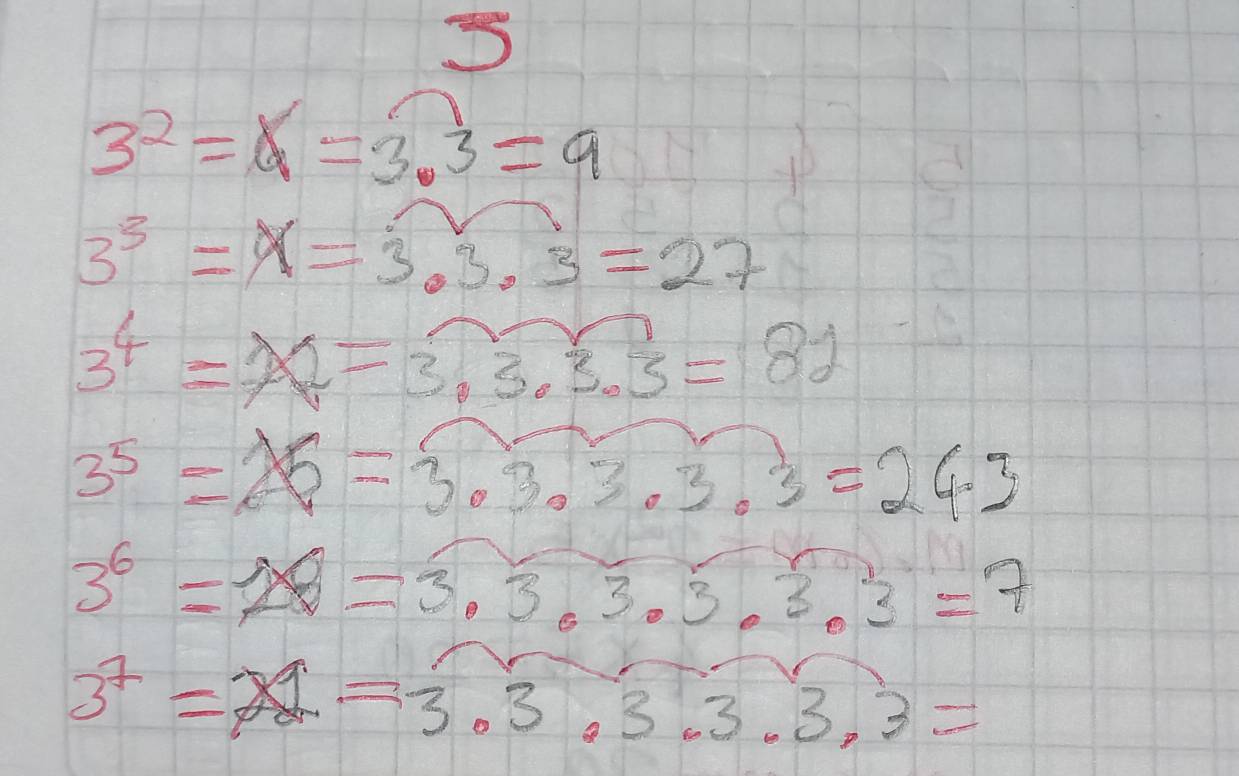 3
3² = 6 = 3.3 = 9
3³ = 9 = 3.3.3 = 27
3⁴ = 12 = 3.3.3.3 = 81
3⁵ = 15 = 3.3.3.3.3 = 243
3⁶ = 18 = 3.3.3.3.3.3 = 7
3⁷ = 21 = 3.3.3.3.3.3 =